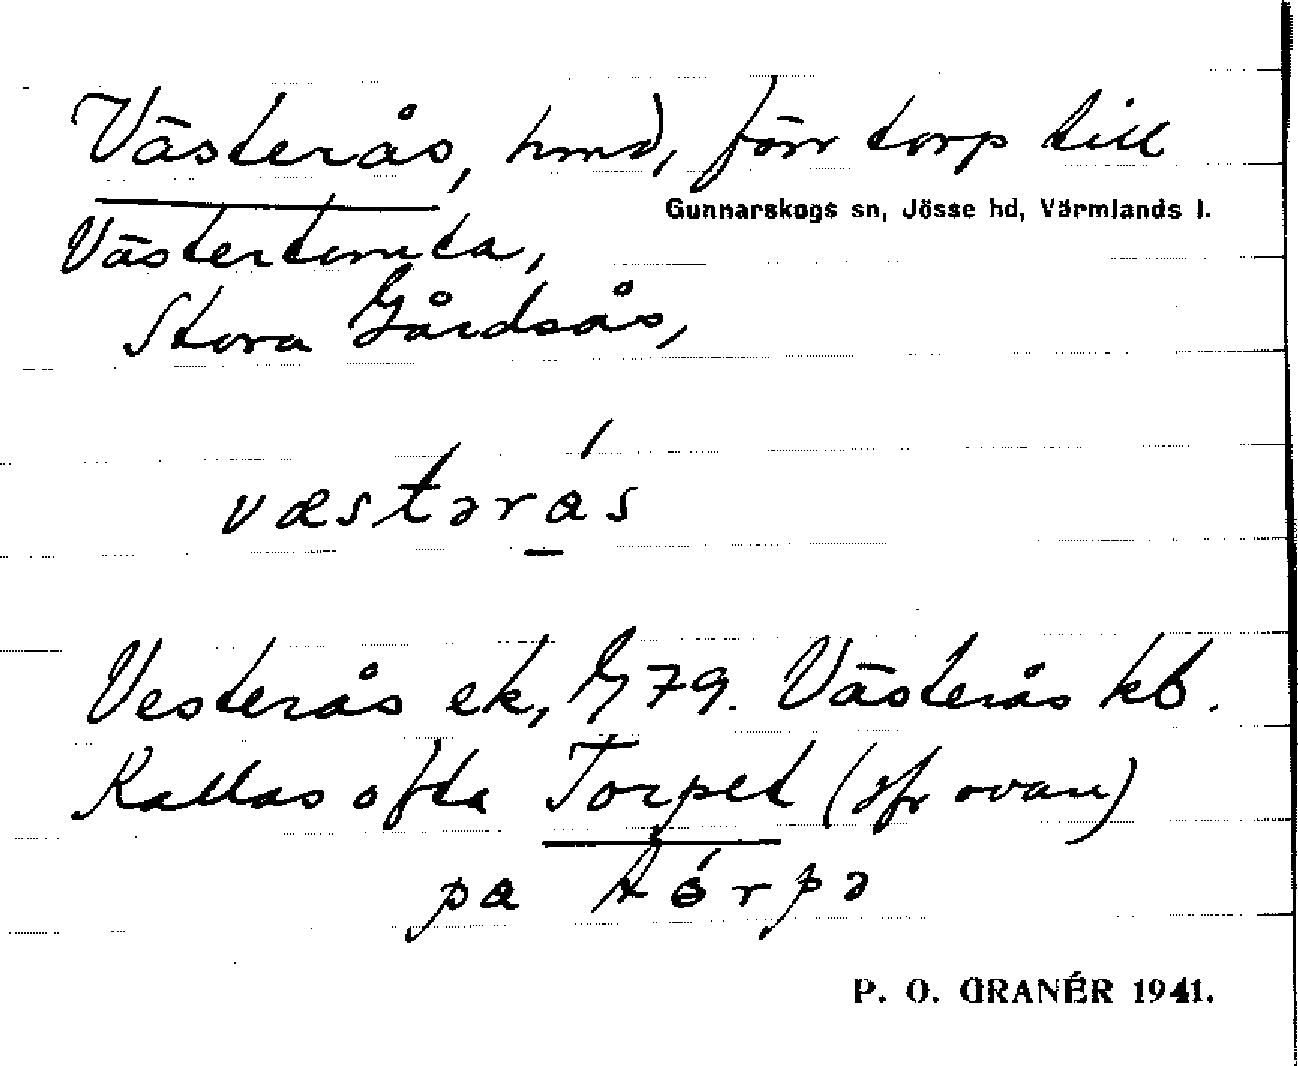 Västerås, hmd, förr torp till
Gunnarskogs sn, Jösse hd, Värmlands l.
Västertomta,
Stora Gårdsås,
væstərås
Vesterås ek, G 79. Västerås kb.
Kallas ofta Torpet (jfr ovan)
pa tórpə
P. O. GRANÉR 1941.